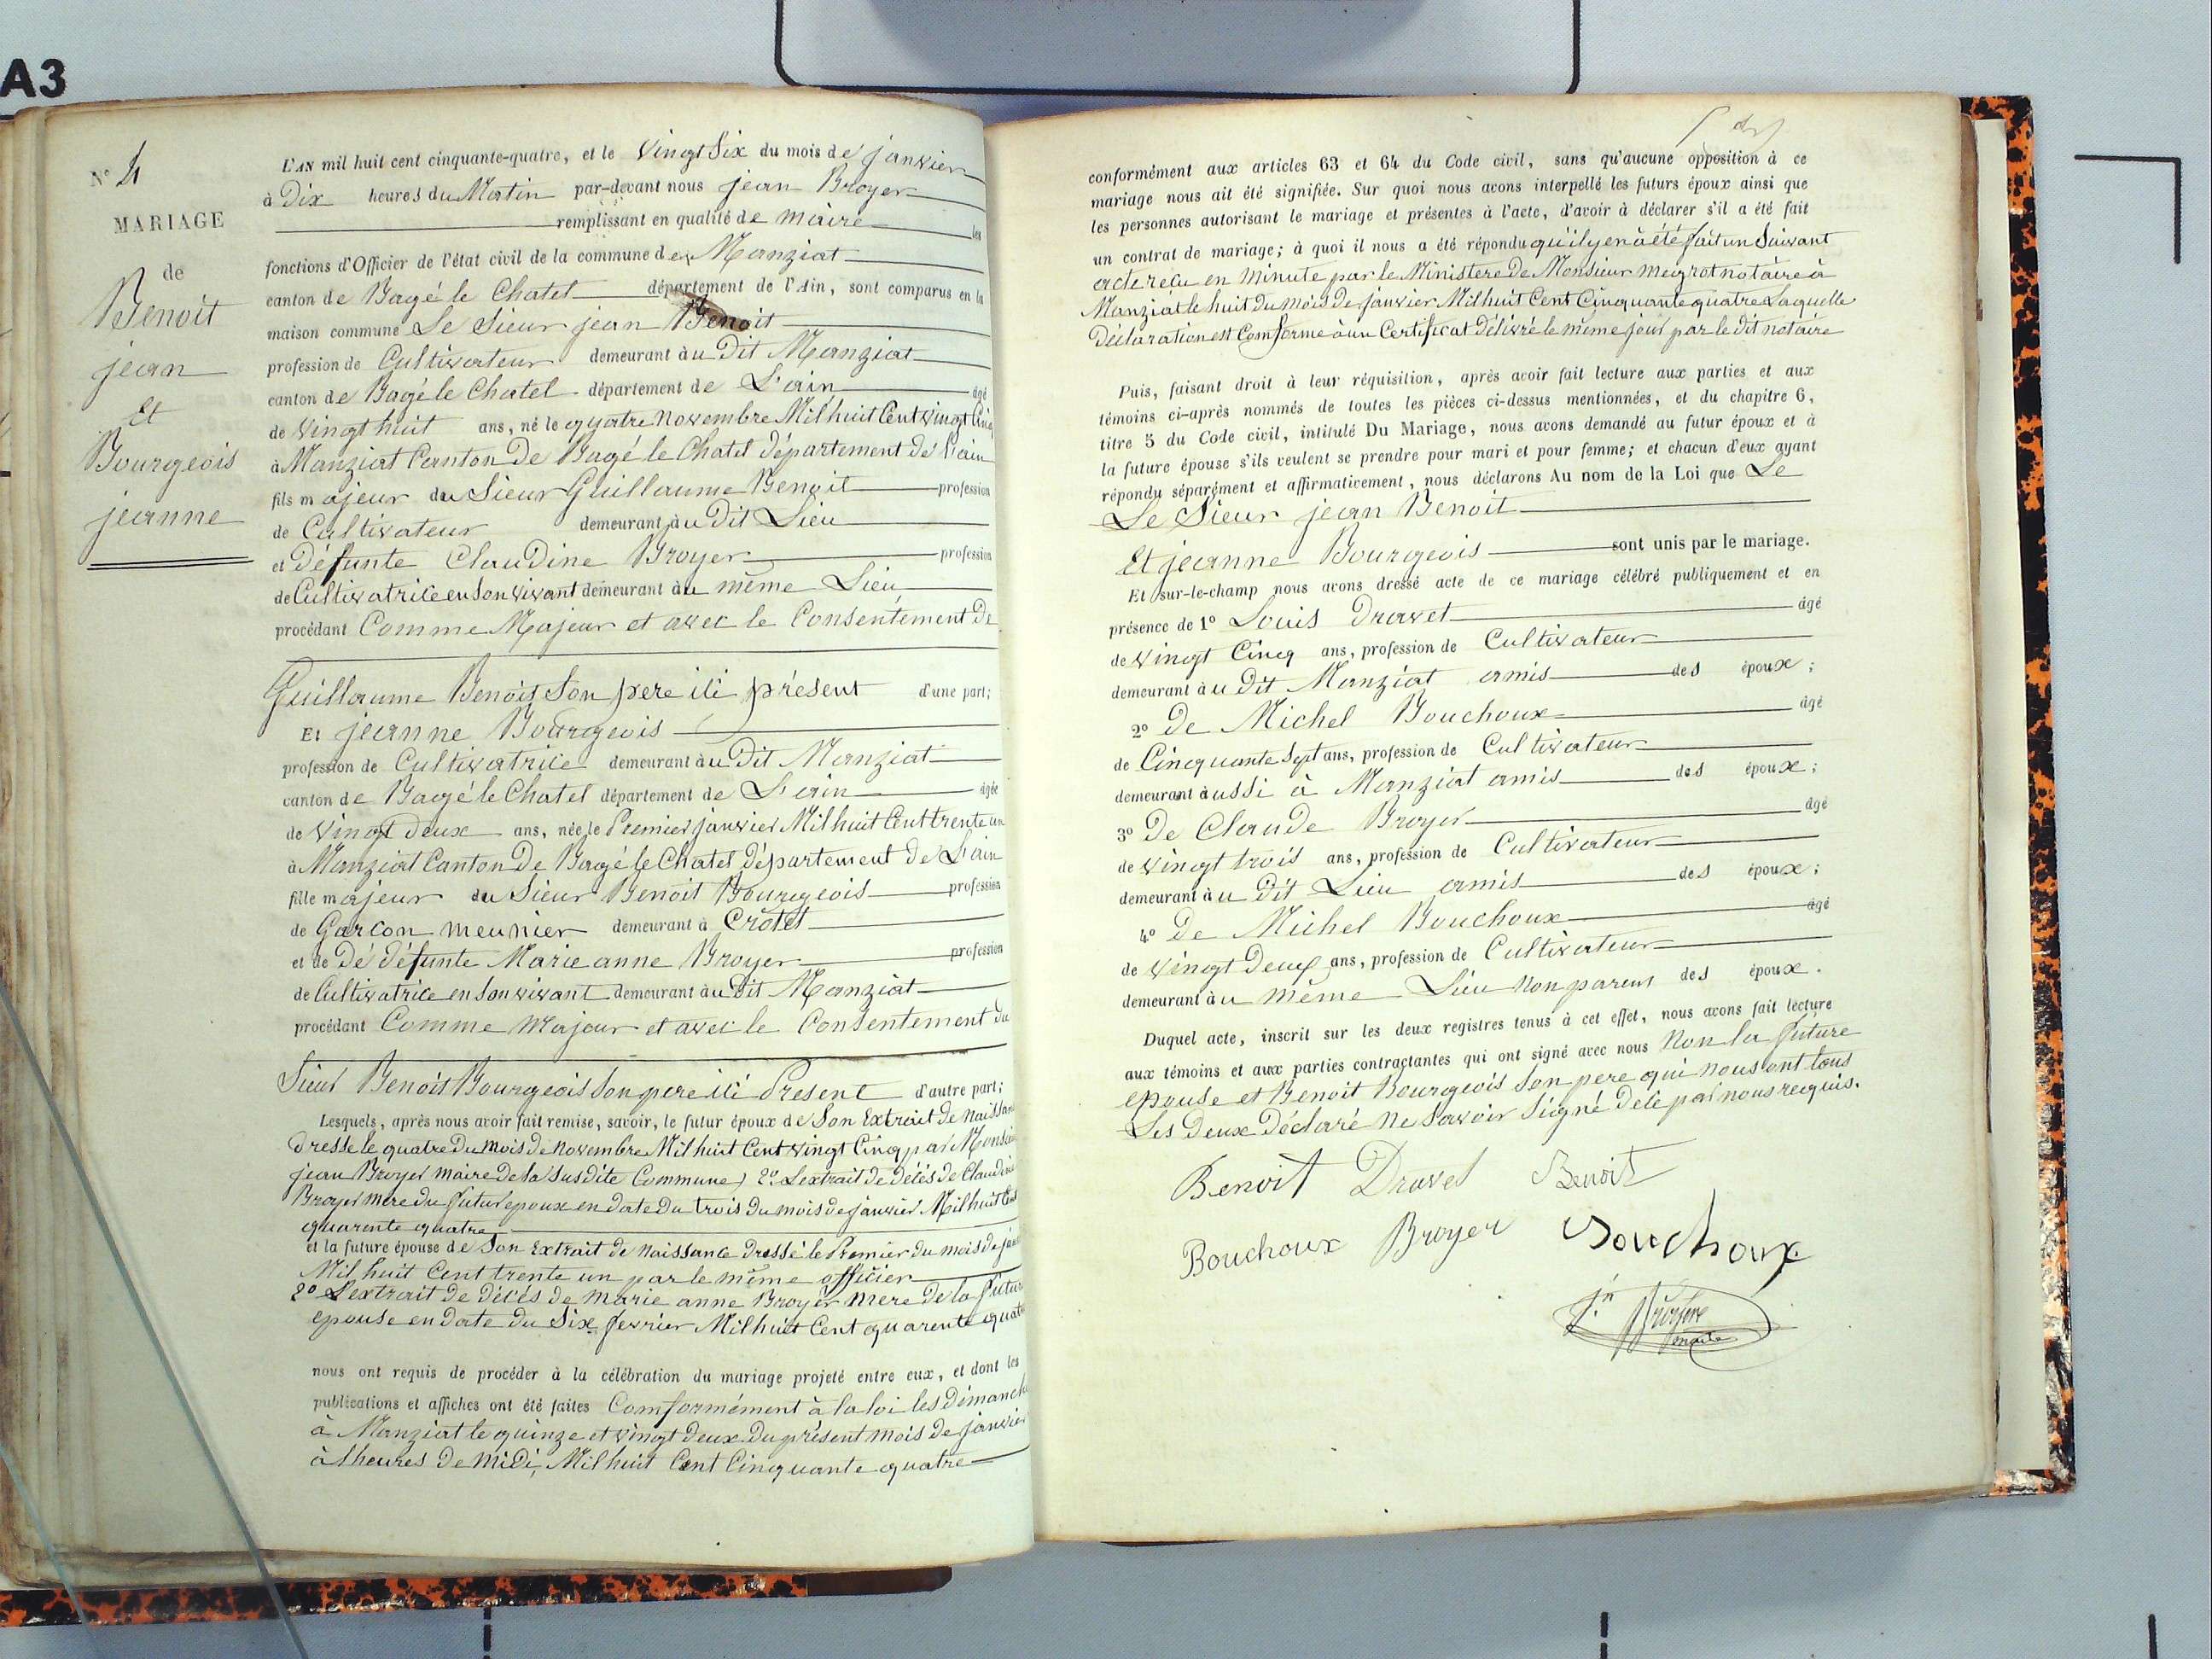 A3
N° 4
MARIAGE
de
Benoit
jean
Et
Bourgeois
jeanne
L'AN mil huit cent cinquante-quatre, et le vingt Six du mois de janvier
à Dix heures du Matin par-devant nous jean Broyer
remplissant en qualité de maire les
fonctions d'Officier de l'état civil de la commune de Manziat
canton de Bagé le Chatel département de l'Ain, sont comparus en la
maison commune Le Sieur jean Benoit
profession de Cultivateur demeurant à u Dit Manziat
canton de Bagé le Chatel département de L'ain âgé
de vingt huit ans, né le quatre novembre Mil huit Cent vingt Cinq
à Manziat Canton De Bagé le Chatel Département de L'ain
fils majeur du Sieur Guillaume Benoit profession
de Cultivateur demeurant à u Dit Lieu
et Défunte Claudine Broyer profession
de Cultivatrice en Son vivant demeurant à u même Lieu
procédant Comme Majeur et avec le Consentement De
Guillaume Benoit Son pere ici présent d'une part;
Et jeanne Bourgeois
profession de Cultivatrice demeurant à u Dit Manziat
canton de Bagé le Chatel département de L'ain âgée
de vingt Deux ans, née le Premier janvier Mil huit Cent trente un
à Manziat Canton De Bagé le Chatel Département De L'ain
fille majeur du Sieur Benoit Bourgeois profession
de Garcon meunier demeurant à Crotet
et de Dé défunte Marie anne Broyer profession
de Cultivatrice en Son vivant demeurant à u Dit Manziat
procédant Comme Majeur et avec le Consentement du
Sieur Benoit Bourgeois Son pere ici Present d'autre part;
Lesquels, après nous avoir fait remise, savoir, le futur époux de Son Extrait de Naissan
Dresse le quatre Du Mois De Novembre Mil huit Cent vingt Cinq par Monsieu
jean Broyer Maire De la Susdite Commune, 2° L'extrait De Décés de Claudine
Broyer mere du futur epoux en Date Du trois Du mois De janvier Mil huit Cent
quarente quatre
et la future épouse de Son Extrait de Naissance Dressé le Premier Du mois De jan
Mil huit Cent trente un par le même officier
2° L'extrait de décés de marie anne Broyer mere De la futur
epouse en Date Du Six fevrier Mil huit Cent quarente quatr
nous ont requis de procéder à la célébration du mariage projeté entre eux, et dont les
publications et affiches ont été faites Comformément à la loi les Dimanch
à Manziat le quinze et vingt Deux Du présent Mois De janvier
à lheures De midi, Mil huit Cent Cinquante quatre
conformément aux articles 63 et 64 du Code civil, sans qu'aucune opposition à ce
mariage nous ait été signifiée. Sur quoi nous avons interpellé les futurs époux ainsi que
les personnes autorisant le mariage et présentes à l'acte, d'avoir à déclarer s'il a été fait
un contrat de mariage; à quoi il nous a été répondu qu'il y en à été fait un Suivant
acte reçu en Minute par le Ministere De Monsieur Meyrot notaire à
Manziat le huit Du mois De janvier Mil huit Cent Cinquante quatre Laquelle
Déclaration est Comforme à un Certificat Délivré le même jour par le Dit notaire
Puis, faisant droit à leur réquisition, après avoir fait lecture aux parties et aux
témoins ci-après nommés de toutes les pièces ci-dessus mentionnées, et du chapitre 6,
titre 5 du Code civil, intitulé Du Mariage, nous avons demandé au futur époux et à
la future épouse s'ils veulent se prendre pour mari et pour femme; et chacun d'eux ayant
répondu séparément et affirmativement, nous déclarons Au nom de la Loi que Le
Le Sieur jean Benoit
Et jeanne Bourgeois sont unis par le mariage.
Et sur-le-champ nous avons dressé acte de ce mariage célébré publiquement et en
présence de 1° Louis Dravet âgé
de vingt Cinq ans, profession de Cultivateur
demeurant à u Dit Manziat amis des époux;
2° De Michel Bouchoux âgé
de Cinquante Sept ans, profession de Cultivateur
demeurant à ussi à Manziat amis des époux;
3° De Claude Broyer âgé
de vingt trois ans, profession de Cultivateur
demeurant à u Dit Lieu amis des époux;
4° De Michel Bouchoux âgé
de vingt Deux ans, profession de Cultivateur
demeurant à u même Lieu Non parens des époux.
Duquel acte, inscrit sur les deux registres tenus à cet effet, nous avons fait lecture
aux témoins et aux parties contractantes qui ont signé avec nous Non la future
epouse et Benoit Bourgeois Son pere qui nous ont tous
Les Deux Déclaré Ne Savoir Signé De ce par nous requis.
Benoit Dravet Benoit
Bouchoux Broyer Bouchoux
jn Broyer
maire